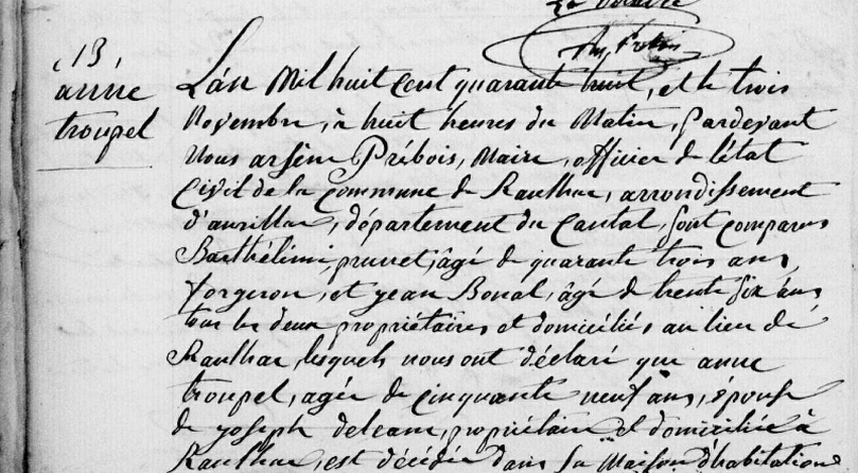 13
anne
troupel
L'an Mil huit cent quarante huit, et le trois
Novembre, à huit heures du Matin, Pardevant
Nous arsène Prébois, Maire, officier de l'état
Civil de la Commune de Raulhac, arrondissement
d'aurillac, département du Cantal, sont comparus
Barthélimi prunet, âgé de quarante trois ans,
forgeron, et jean Bonal, âgé de trente six ans
tous les deux propriétaires et domiciliés au lieu de
Raulhac, lesquels nous ont déclaré que anne
troupel, agée de cinquante neuf ans, épouse
de joseph, propriétaire et domiciliée à
Raulhac, est décédée dans sa Maison d'habitation